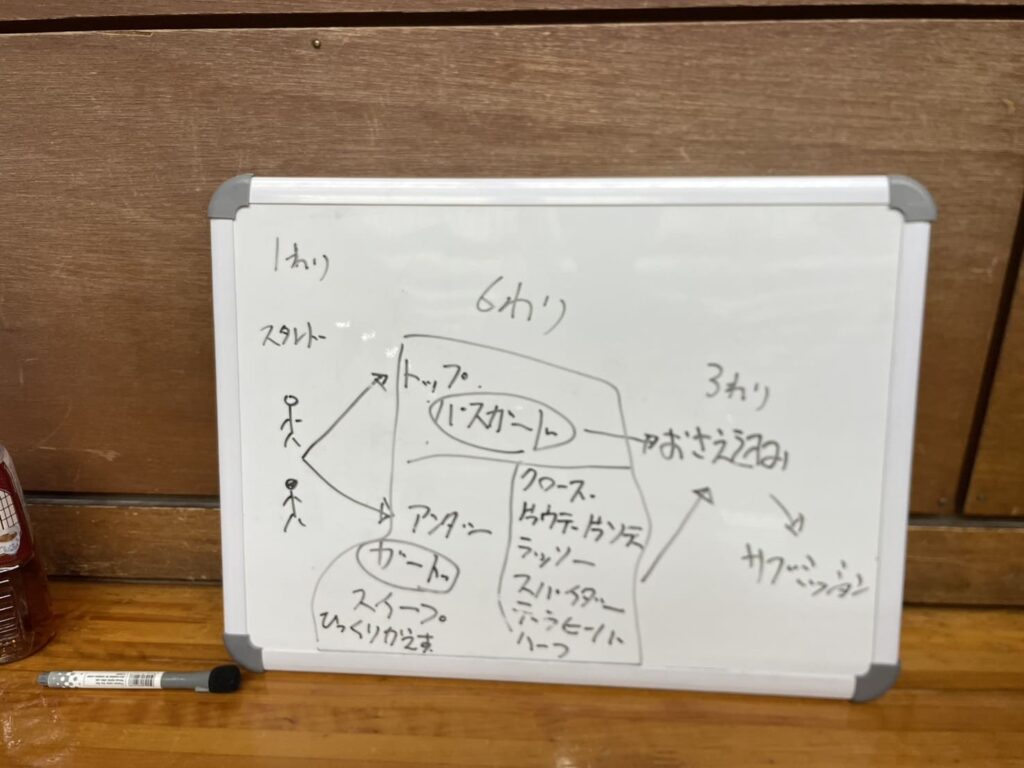 1わり
スタート
6わり
トップ
パスガード
アンダー
ガード
スイープ
ひっくりかえす
クローズ
ラッソー
スパイダー
デラヒーバ
ハーフ
3わり
おさえこみ
サブミッション